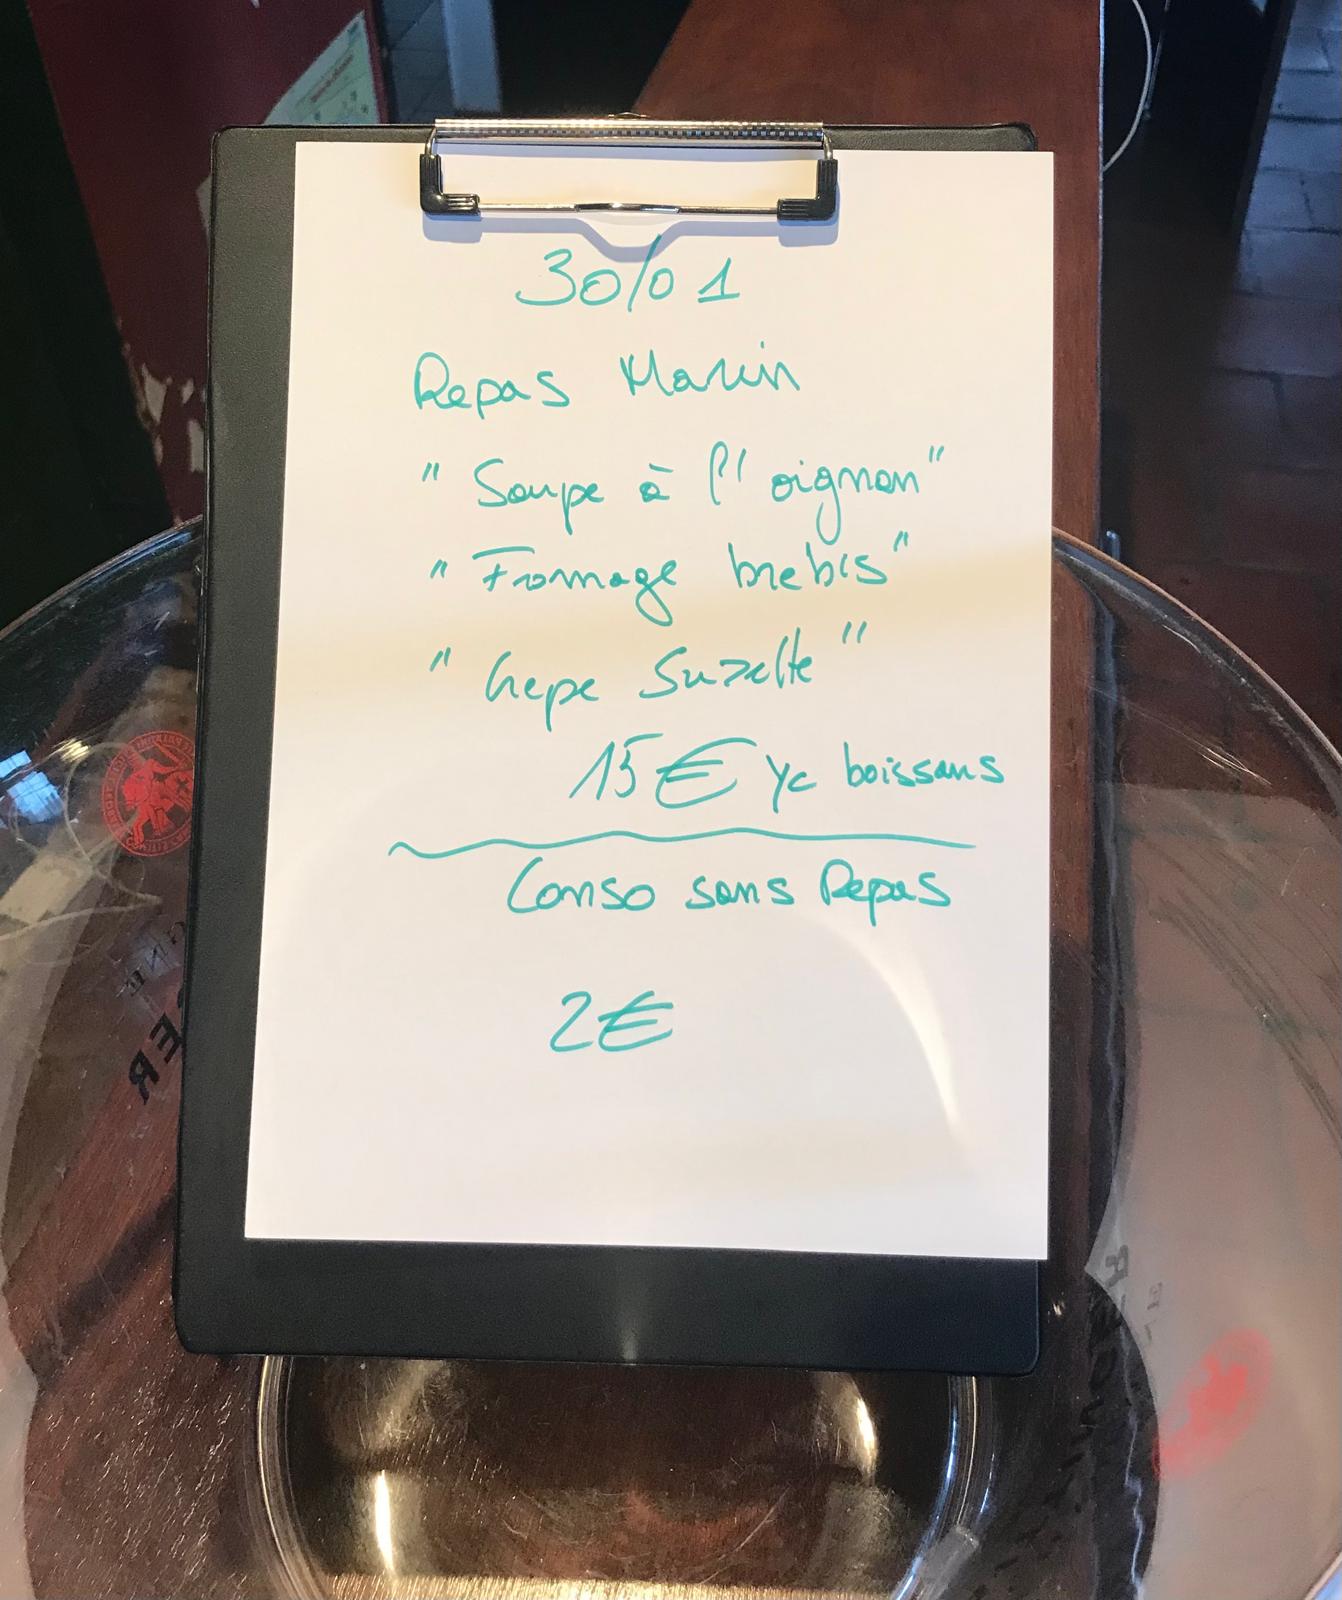 30/01
Repas Marin
" Soupe à l'oignon "
" Fromage brebis "
" Crepe Suzette "
15€ yc boissons
Conso sans Repas
2€